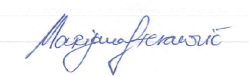 Marijana Stevanović